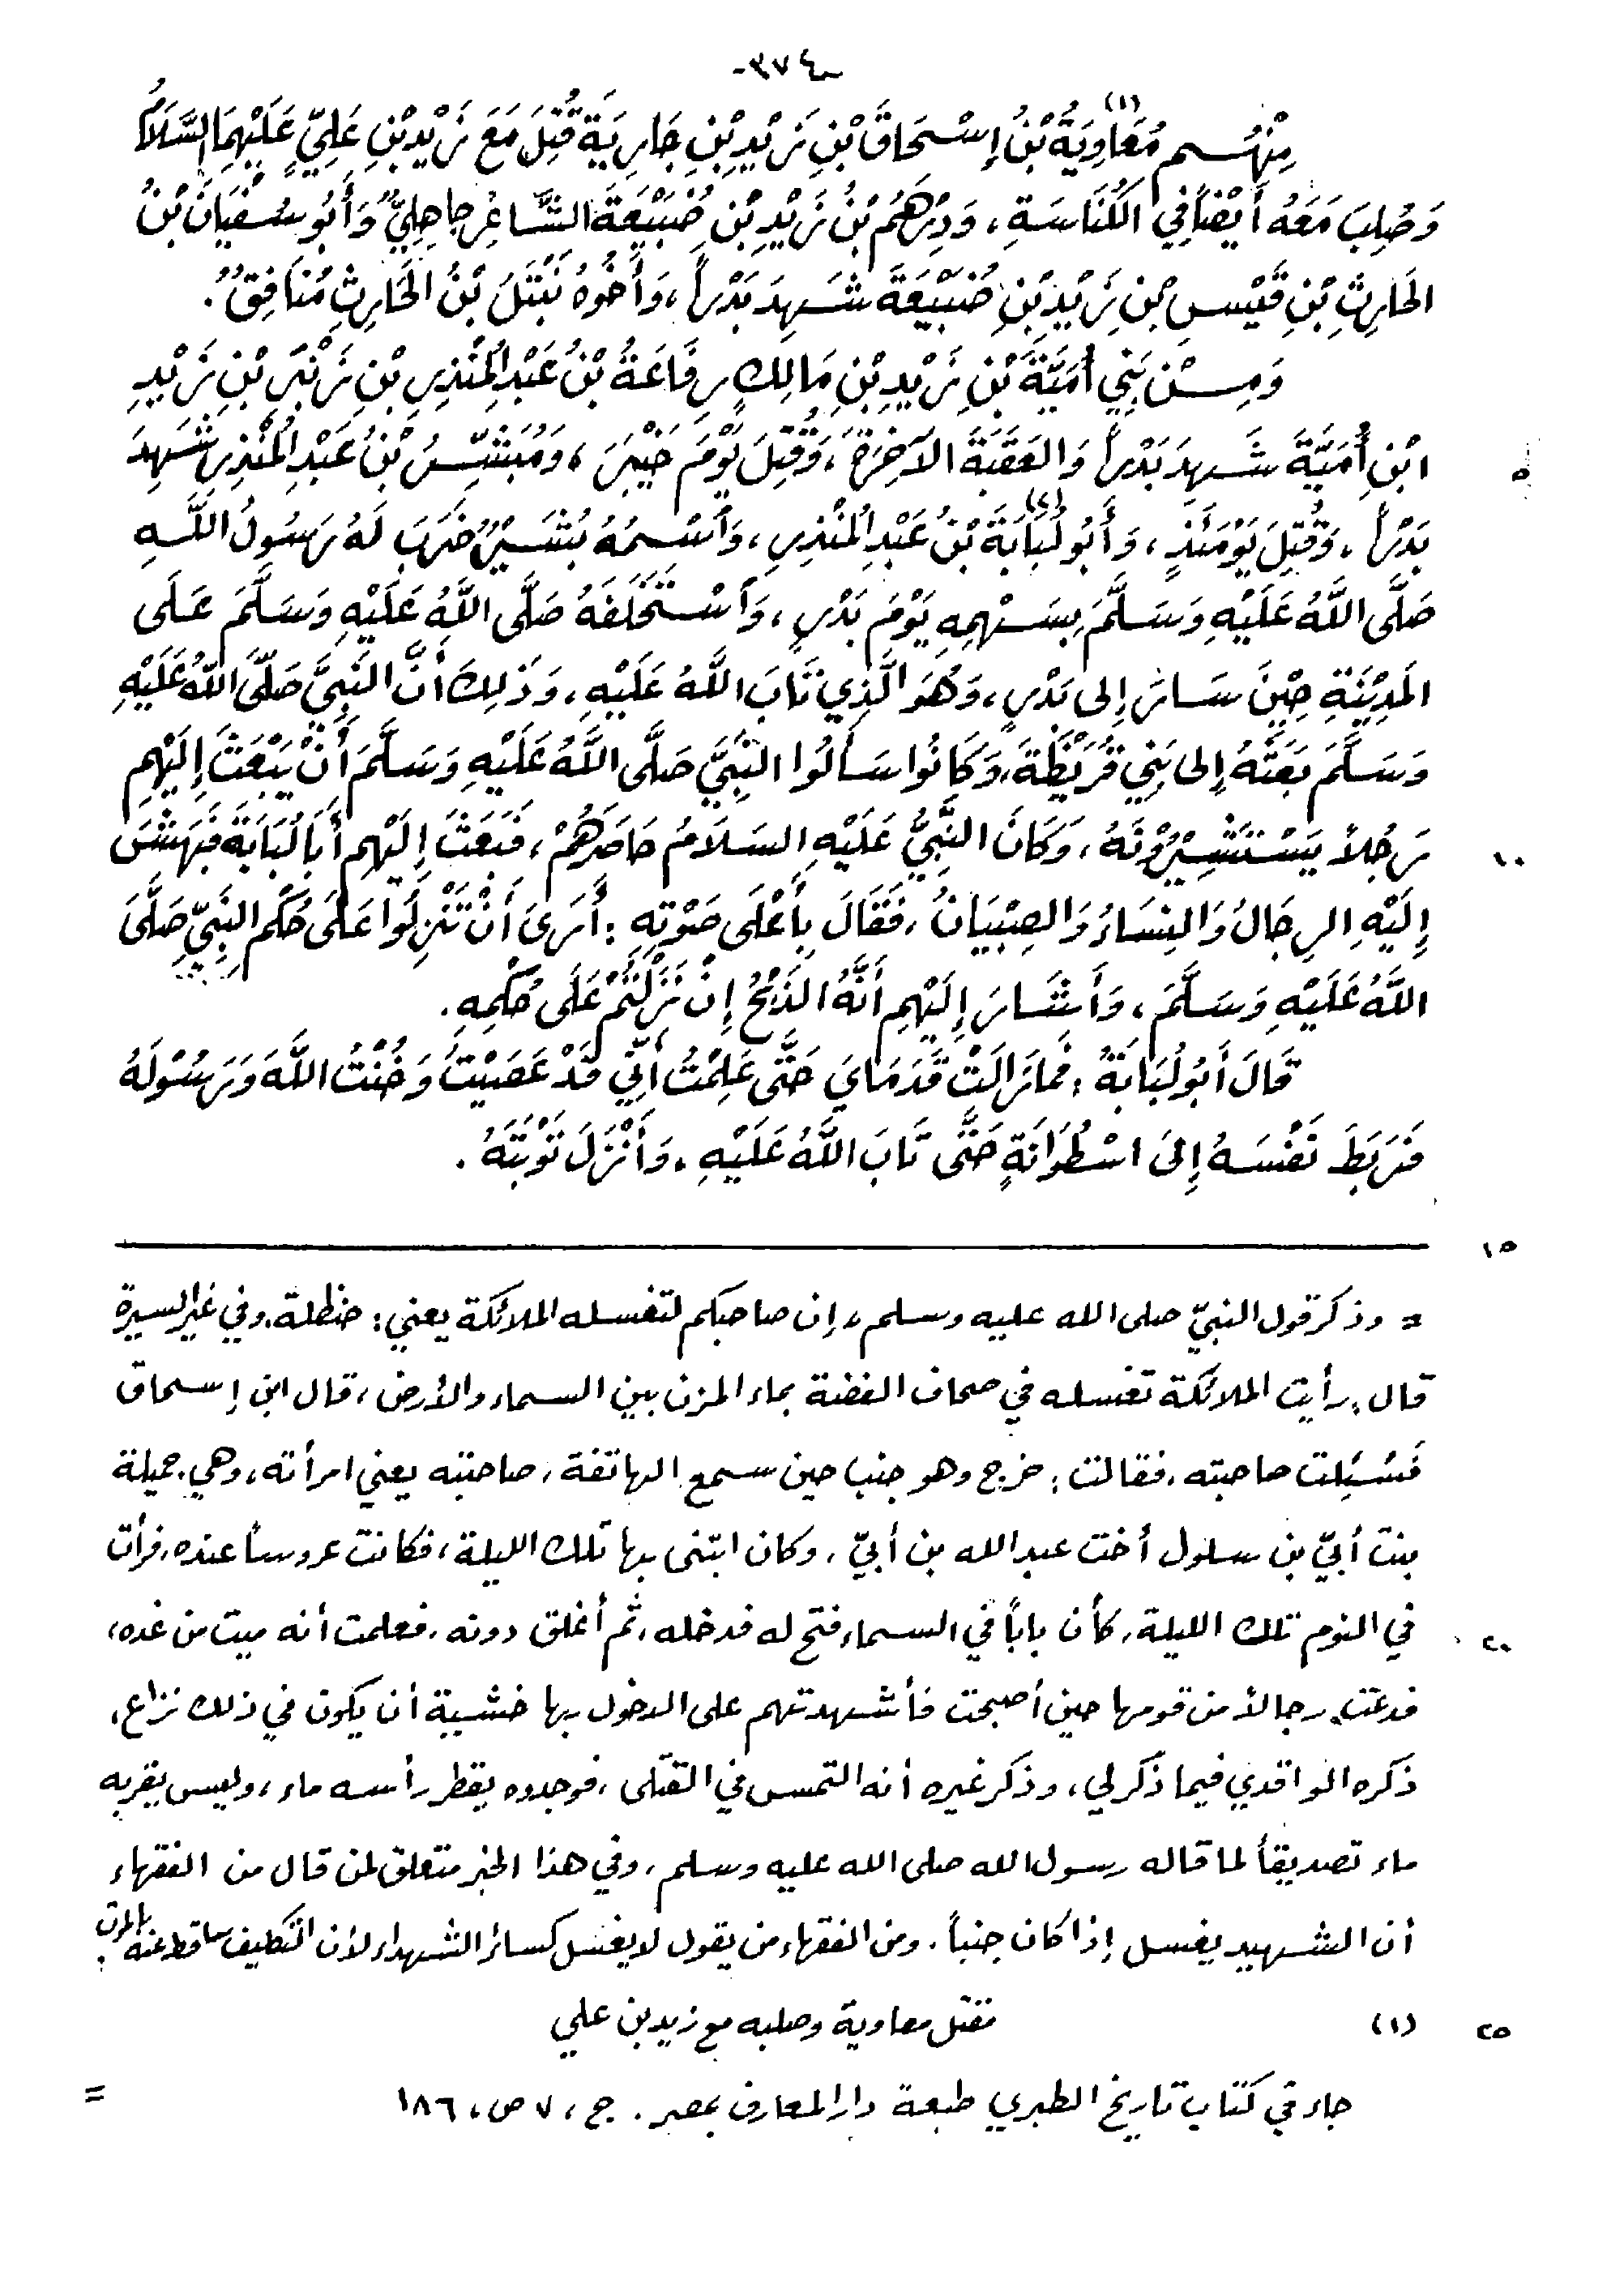 -٣٧٤-
مِنْهُم مُعَاوِيَةُ(١) بْنُ إِسْحَاقَ بْنِ زَيْدِ بْنِ جَارِيَةَ قُتِلَ مَعَ زَيْدِ بْنِ عَلِيٍّ عَلَيْهِمَا السَّلَامُ
وَصُلِبَ مَعَهُ أَيْضاً فِي الكُنَاسَةِ، وَدِرْهَمُ بْنُ زَيْدِ بْنِ ضُبَيْعَةَ الشَّاعِرُ جَاهِلِيٌّ وَأَبُو سُفْيَانَ بْنُ
الحَارِثِ بْنِ قَيْسِ بْنِ زَيْدِ بْنِ ضُبَيْعَةَ شَهِدَ بَدْراً، وَأَخُوهُ نَبْتَلُ بْنُ الحَارِثِ مُنَافِقٌ.
وَمِنْ بَنِي أُمَيَّةَ بْنِ زَيْدِ بْنِ مَالِكٍ رِفَاعَةُ بْنُ عَبْدِ المُنْذِرِ بْنِ زَنْبَرِ بْنِ زَيْدِ
ابْنِ أُمَيَّةَ شَهِدَ بَدْراً وَالعَقَبَةَ الآخِرَةَ، وَقُتِلَ يَوْمَ خَيْبَرَ، وَمُبَشِّرُ بْنُ عَبْدِ المُنْذِرِ شَهِدَ
٥
بَدْراً، وَقُتِلَ يَوْمَئِذٍ، وَأَبُو لُبَابَةَ(٢) بْنُ عَبْدِ المُنْذِرِ، وَاسْمُهُ بُشَيْرٌ ضَرَبَ لَهُ رَسُولُ اللَّهِ
صَلَّى اللَّهُ عَلَيْهِ وَسَلَّمَ بِسَهْمِهِ يَوْمَ بَدْرٍ، وَاسْتَخْلَفَهُ صَلَّى اللَّهُ عَلَيْهِ وَسَلَّمَ عَلَى
المَدِيْنَةِ حِيْنَ سَارَ إِلى بَدْرٍ، وَهُوَ الَّذِي تَابَ اللَّهُ عَلَيْهِ، وَذَلِكَ أَنَّ النَّبِيَّ صَلَّى اللَّهُ عَلَيْهِ
وَسَلَّمَ بَعَثَهُ إِلى بَنِي قُرَيْظَةَ، وَكَانُوا سَأَلُوا النَّبِيَّ صَلَّى اللَّهُ عَلَيْهِ وَسَلَّمَ أَنْ يَبْعَثَ إِلَيْهِم
رَجُلاً يَسْتَشِيْرُوْنَهُ، وَكَانَ النَّبِيُّ عَلَيْهِ السَلَامُ حَاصَرَهُمْ، فَبَعَثَ إِلَيْهِم أَبَا لُبَابَةَ فَبَهَشَ
١٠
إِلَيْهِ الرِجَالُ وَالنِسَاءُ وَالصِبْيَانُ، فَقَالَ بِأَعْلَى صَوْتِهِ: أَرَى أَنْ تَنْزِلُوا عَلَى حُكْمِ النَّبِيِّ صَلَّى
اللَّهُ عَلَيْهِ وَسَلَّمَ، وَأَشَارَ إِلَيْهِم أَنَّهُ الذَبْحُ إِنْ نَزَلْتُمْ عَلَى حُكْمِهِ.
قَالَ أَبُو لُبَابَةَ: فَمَا زَالَتْ قَدَمَايَ حَتَّى عَلِمْتُ أَنِّي قَدْ عَصَيْتُ وَخُنْتُ اللَّهَ وَرَسُوْلَهُ
فَرَبَطَ نَفْسَهُ إِلَى اسْطُوَانَةٍ حَتَّى تَابَ اللَّهُ عَلَيْهِ، وَأَنْزَلَ تَوْبَتَهُ.
١٥
= وذكر قول النبيّ صلى الله عليه وسلم، إن صاحبكم لتغسله الملائكة يعني: حنظلة، وفي غير السيرة
قال، رأيت الملائكة تغسله في صحاف الفضة بماء المزن بين السماء والأرض، قال ابن إسحاق
فَسُئِلت صاحبته، فقالت: خرج وهو جنب حين سمع الهاتفة، صاحبته يعني امرأته، وهي جميلة
بنت أبيّ بن سلول أخت عبدالله بن أبيّ، وكان ابتنى بها تلك الليلة، فكانت عروساً عنده، فرأت
في النوم تلك الليلة، كأن باباً في السماء فتح له فدخله، ثم أغلق دونه، فعلمت أنه ميت من غده،
٢٠
فدعت رجالاً من قومها حين أصبحت فأشهدتهم على الدخول بها خشية أن يكون في ذلك نزاع،
ذكره الواقدي فيما ذُكر لي، وذكر غيره أنه التمس في القتلى، فوجدوه يقطر رأسه ماء، وليس بقربه
ماء تصديقاً لما قاله رسول الله صلى الله عليه وسلم، وفي هذا الخبر متعلق لمن قال من الفقهاء
أن الشهيد يغسل إذا كان جنباً، ومن الفقهاء من يقول لا يغسل كسائر الشهداء لأن التكليف ساقط عنه بالموت.
(١) مقتل معاوية وصلبه مع زيد بن علي
٢٥
جاء في كتاب تاريخ الطبري طبعة دار المعارف بمصر. ج، ٧ ص، ١٨٦
=